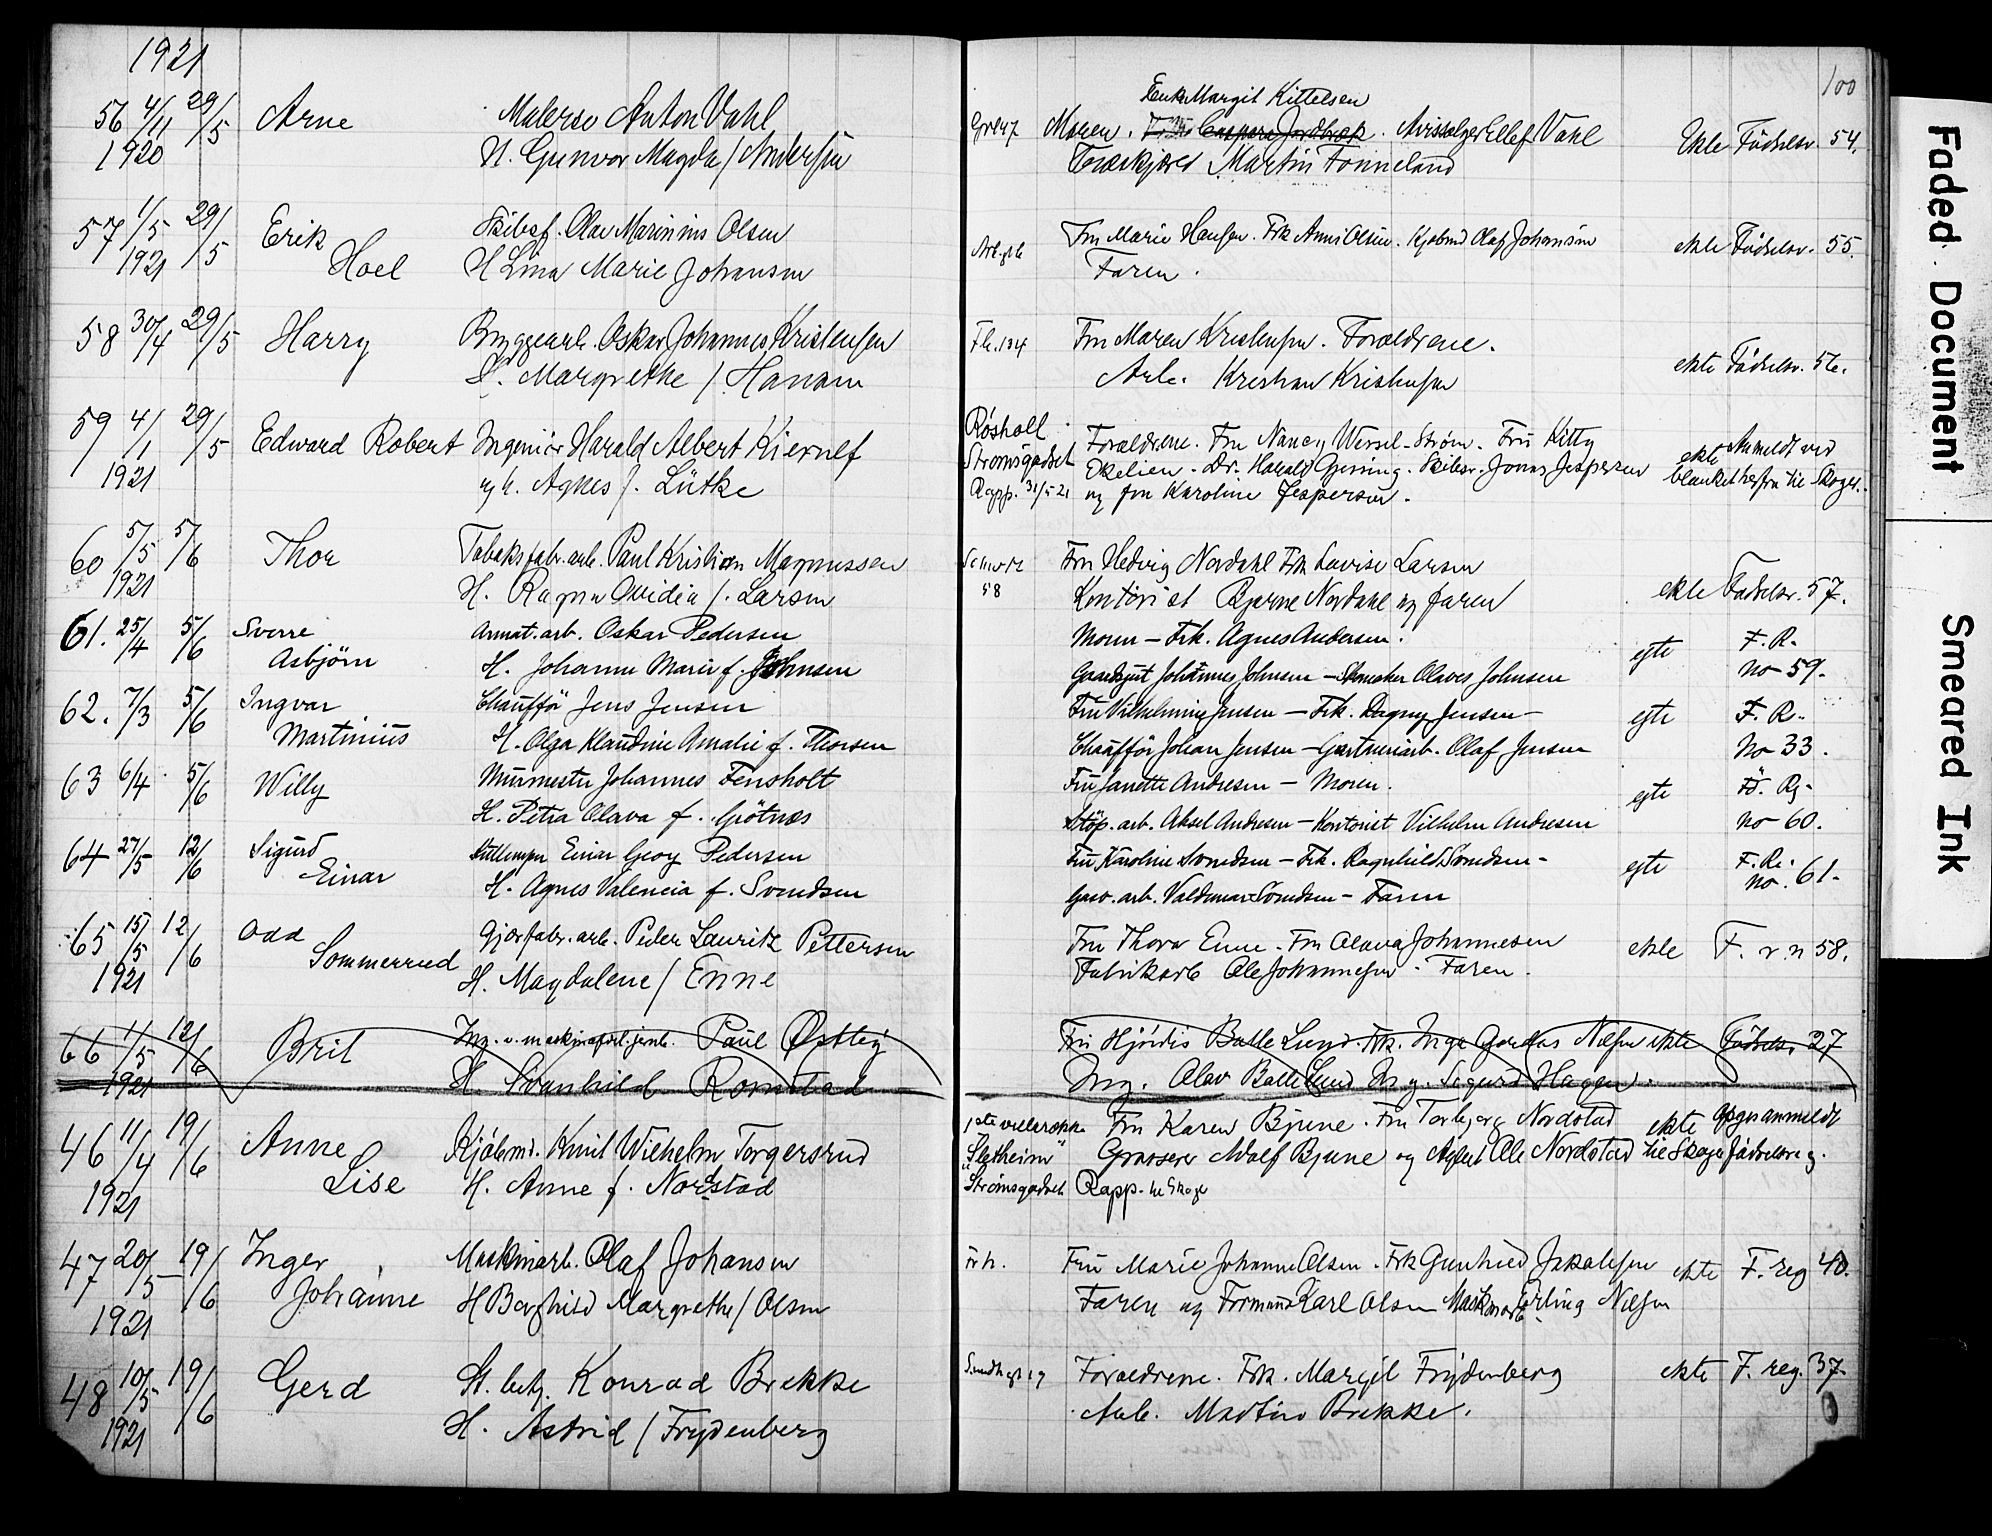 1921
100
56 4/11 29/5 Arne Malersv Anton Vahl
1920 H. Gunvor Magda f. Andersen
Enke Margit Kittelsen
Moren. Avissælger Ellef Vahl ekte Fødselsr. 54.
Træskjærer Martin Tonneland
57 1/5 29/5 Erik Skibsf. Olav Marinius Olsen
1921 Hoel H Lina Marie Johansen
Fru Marie Hansen. Frk Anni Olsen. Kjøbmd Olaf Johansen ekte Fødselsr. 55.
Faren.
58 30/4 29/5 Harry Bryggearb. Oskar Johannes Kristensen
H. Margrethe f. Hansen
Fru Maren Kristensen. Forældrene.
Arb. Kristian Kristensen ekte Fødselsr. 56.
59 4/1 29/5 Edward Robert Ingeniør Harald Albert Kiernlf
1921 og h. Agnes f. Lütke
Røsholl Forældrene. Fru Nancy Wessel-Strøm. Fru Kitty ekte Anmeldt ved
Strømsgodset Ekelien. Dr. Harald Gjessing. Skibsr. Jonas Jespersen blanket herfra til Skoger.
Rapp. 31/5 21 og fru Karoline Jespersen.
60 5/5 5/6 Thor Tobaksfabr. arb. Paul Kristian Magnussen
1921 H. Ragna Ovidia f. Larsen
Fru Hedvig Nordahl Frk Lovise Larsen
58 Kontorist Bjarne Nordahl og faren ekte Fødselsr. 57.
61. 25/4 5/6 Sverre Armat. arb. Oskar Pedersen
Asbjørn H. Johanne Marie f. Johnsen
Moren - Frk. Agnes Andersen. egte F. R.
Johannes Johnsen - Skomaker Olaves Johnsen No 59.
62. 7/3 5/6 Ingvar Chauffør Jens Jensen
Martinius H. Olga Klaudine Amalie f. Thorsen
Fru Vilhelmine Jensen - Frk. Dagny Jensen - egte F. R.
Chauffør Johan Jensen - Gartneriarb. Olaf Jensen No 33.
63 6/4. 5/6 Willy Murmester Johannes Fensholt
H. Petra Olava f. Gjøtnes
Fru Janette Andresen - Moren. egte Fø. Rg.
Støp. arb. Aksel Andresen - Kontorist Vilhelm Andresen No 60.
64 27/5 12/6 Sigurd Einar Georg Pedersen
Einar H. Agnes Valencia f. Svendsen
Fru Karoline Svendsen - Frk. Ragnhild Svendsen - egte F. R.
arb. Valdemar Svendsen - Faren No. 61.
65 15/5 12/6 Odd Gjærfabr. arb. Peder Lauritz Pettersen
1921 Sommerrud H. Magdalene f Enne
Fru Thora Enne. Fru Olava Johannesen ekte F. r. n 58.
Fabrikarb Ole Johannesen. Faren.
66 11/5 12/6 Brit Ing. v. maskinafdl. jernb. Paul Østby
1921 H. Svanhild Romstad
Fru Hjørdis Balle Lund. Frk. Inga Gerdas Nilsen ekte Fødselsr. 27
Ing. Olav Balle Lund Ing. Sigurd Haagen.
46 11/4 19/6 Anne Kjøbmd. Knut Wilhelm Torgersrud
1921 Lise H. Anne f. Nordstad
1ste villarække Fru Karen Bjune. Fru Torbjørg Nordstad ekte opgis anmeldt
"Sletheim" Grosserer Adolf Bjune og Ole Nordstad til Skoger fødselsreg.
Strømsgodset Rapp. til Skoger
47 20/5 19/6 Inger Maskinarb. Olaf Johansen
1921 Johanne H Borghild Margrethe f Olsen
Fru Marie Johanne Olsen. Frk Gunhild Jakobsen ekte F. reg 40.
Faren og Formand Karl Olsen Maskinarb Erling Nilsen
48 10/5 19/6 Gerd St. betj. Konrad Brekke
1921 H. Astrid f Frydenberg
Forældrene. Frk. Margit Frydenberg ekte F. reg. 37.
Arb. Martin Brekke.
Faded Document
Smeared Ink